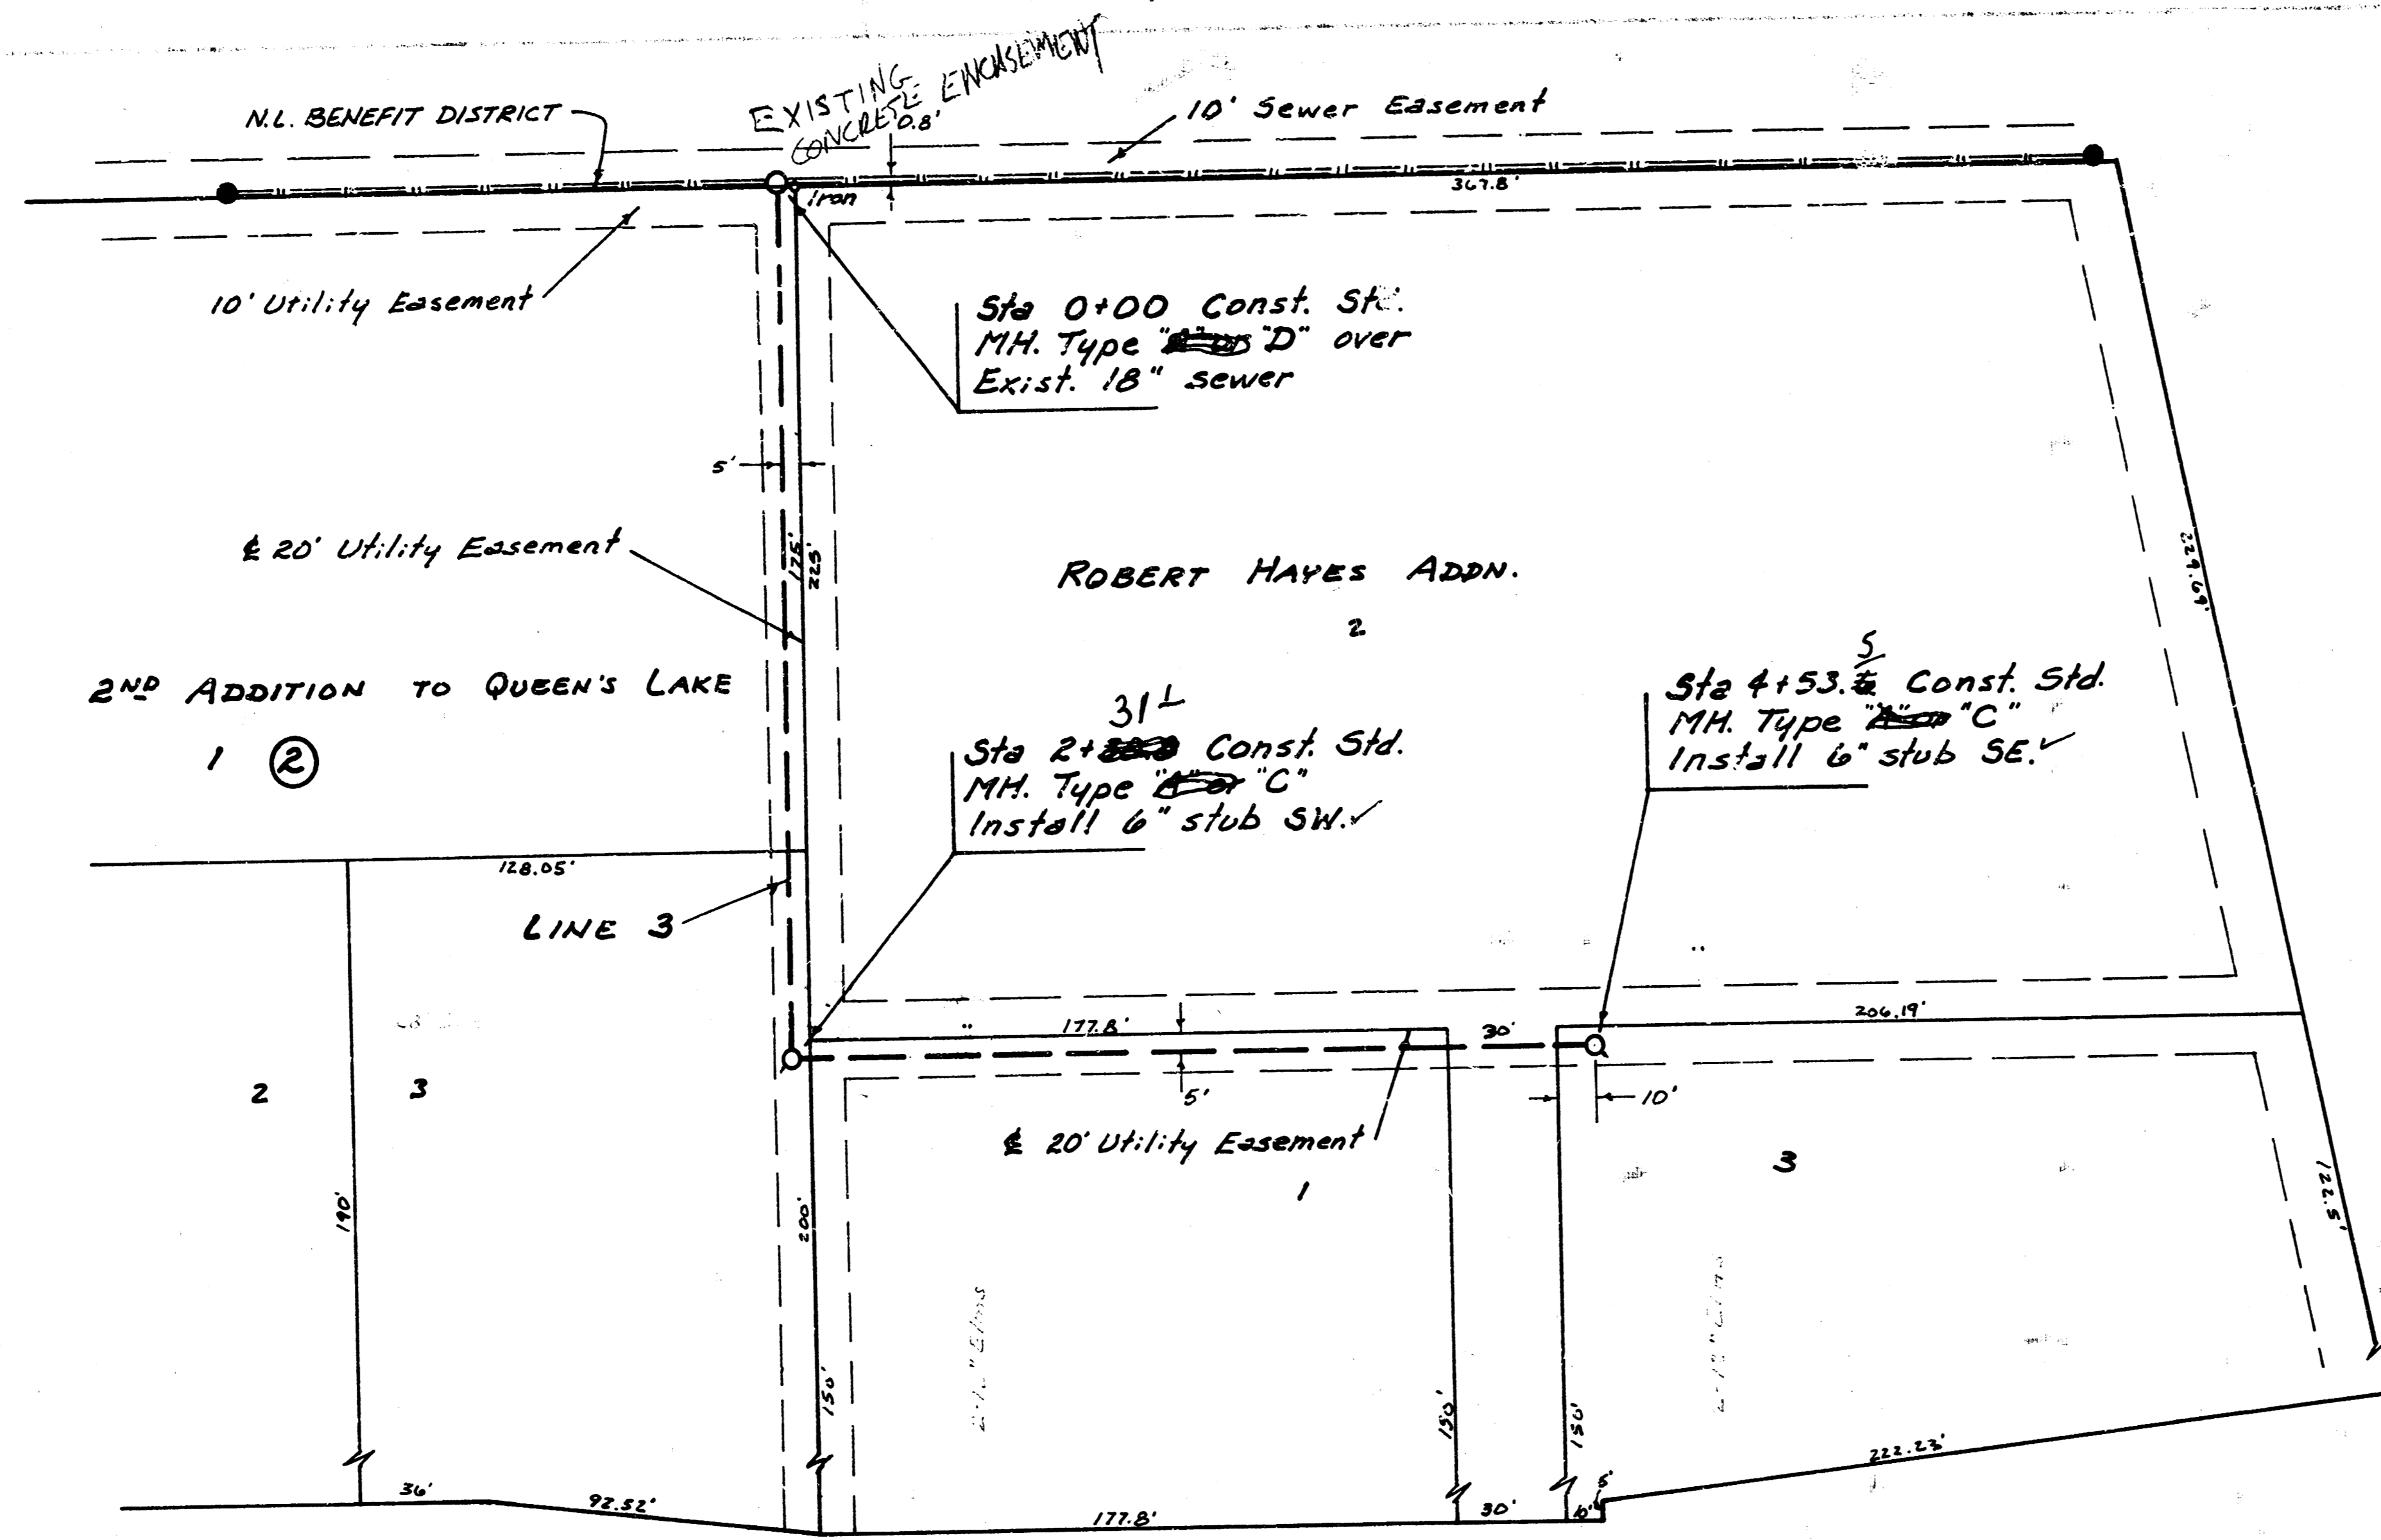 EXISTING
CONCRETE ENCASEMENT
0.8'
N.L. BENEFIT DISTRICT
10' Sewer Easement
367.8'
Iron
10' Utility Easement
Sta 0+00 Const. Std.
MH. Type "D" over
Exist. 18" sewer
5'
℄ 20' Utility Easement
175'
225'
229.69'
ROBERT HAYES ADDN.
2
2ND ADDITION TO QUEEN'S LAKE
1 2
31
Sta 2+ Const. Std.
MH. Type "C"
Install 6" stub SW.✓
5
Sta 4+53. Const. Std.
MH. Type "C"
Install 6" stub SE.✓
128.05'
LINE 3
177.8'
30'
206.19'
2
3
5'
10'
℄ 20' Utility Easement
1
3
190'
200'
122.5'
150'
150'
150'
36'
92.52'
177.8'
30'
10'
5'
222.23'